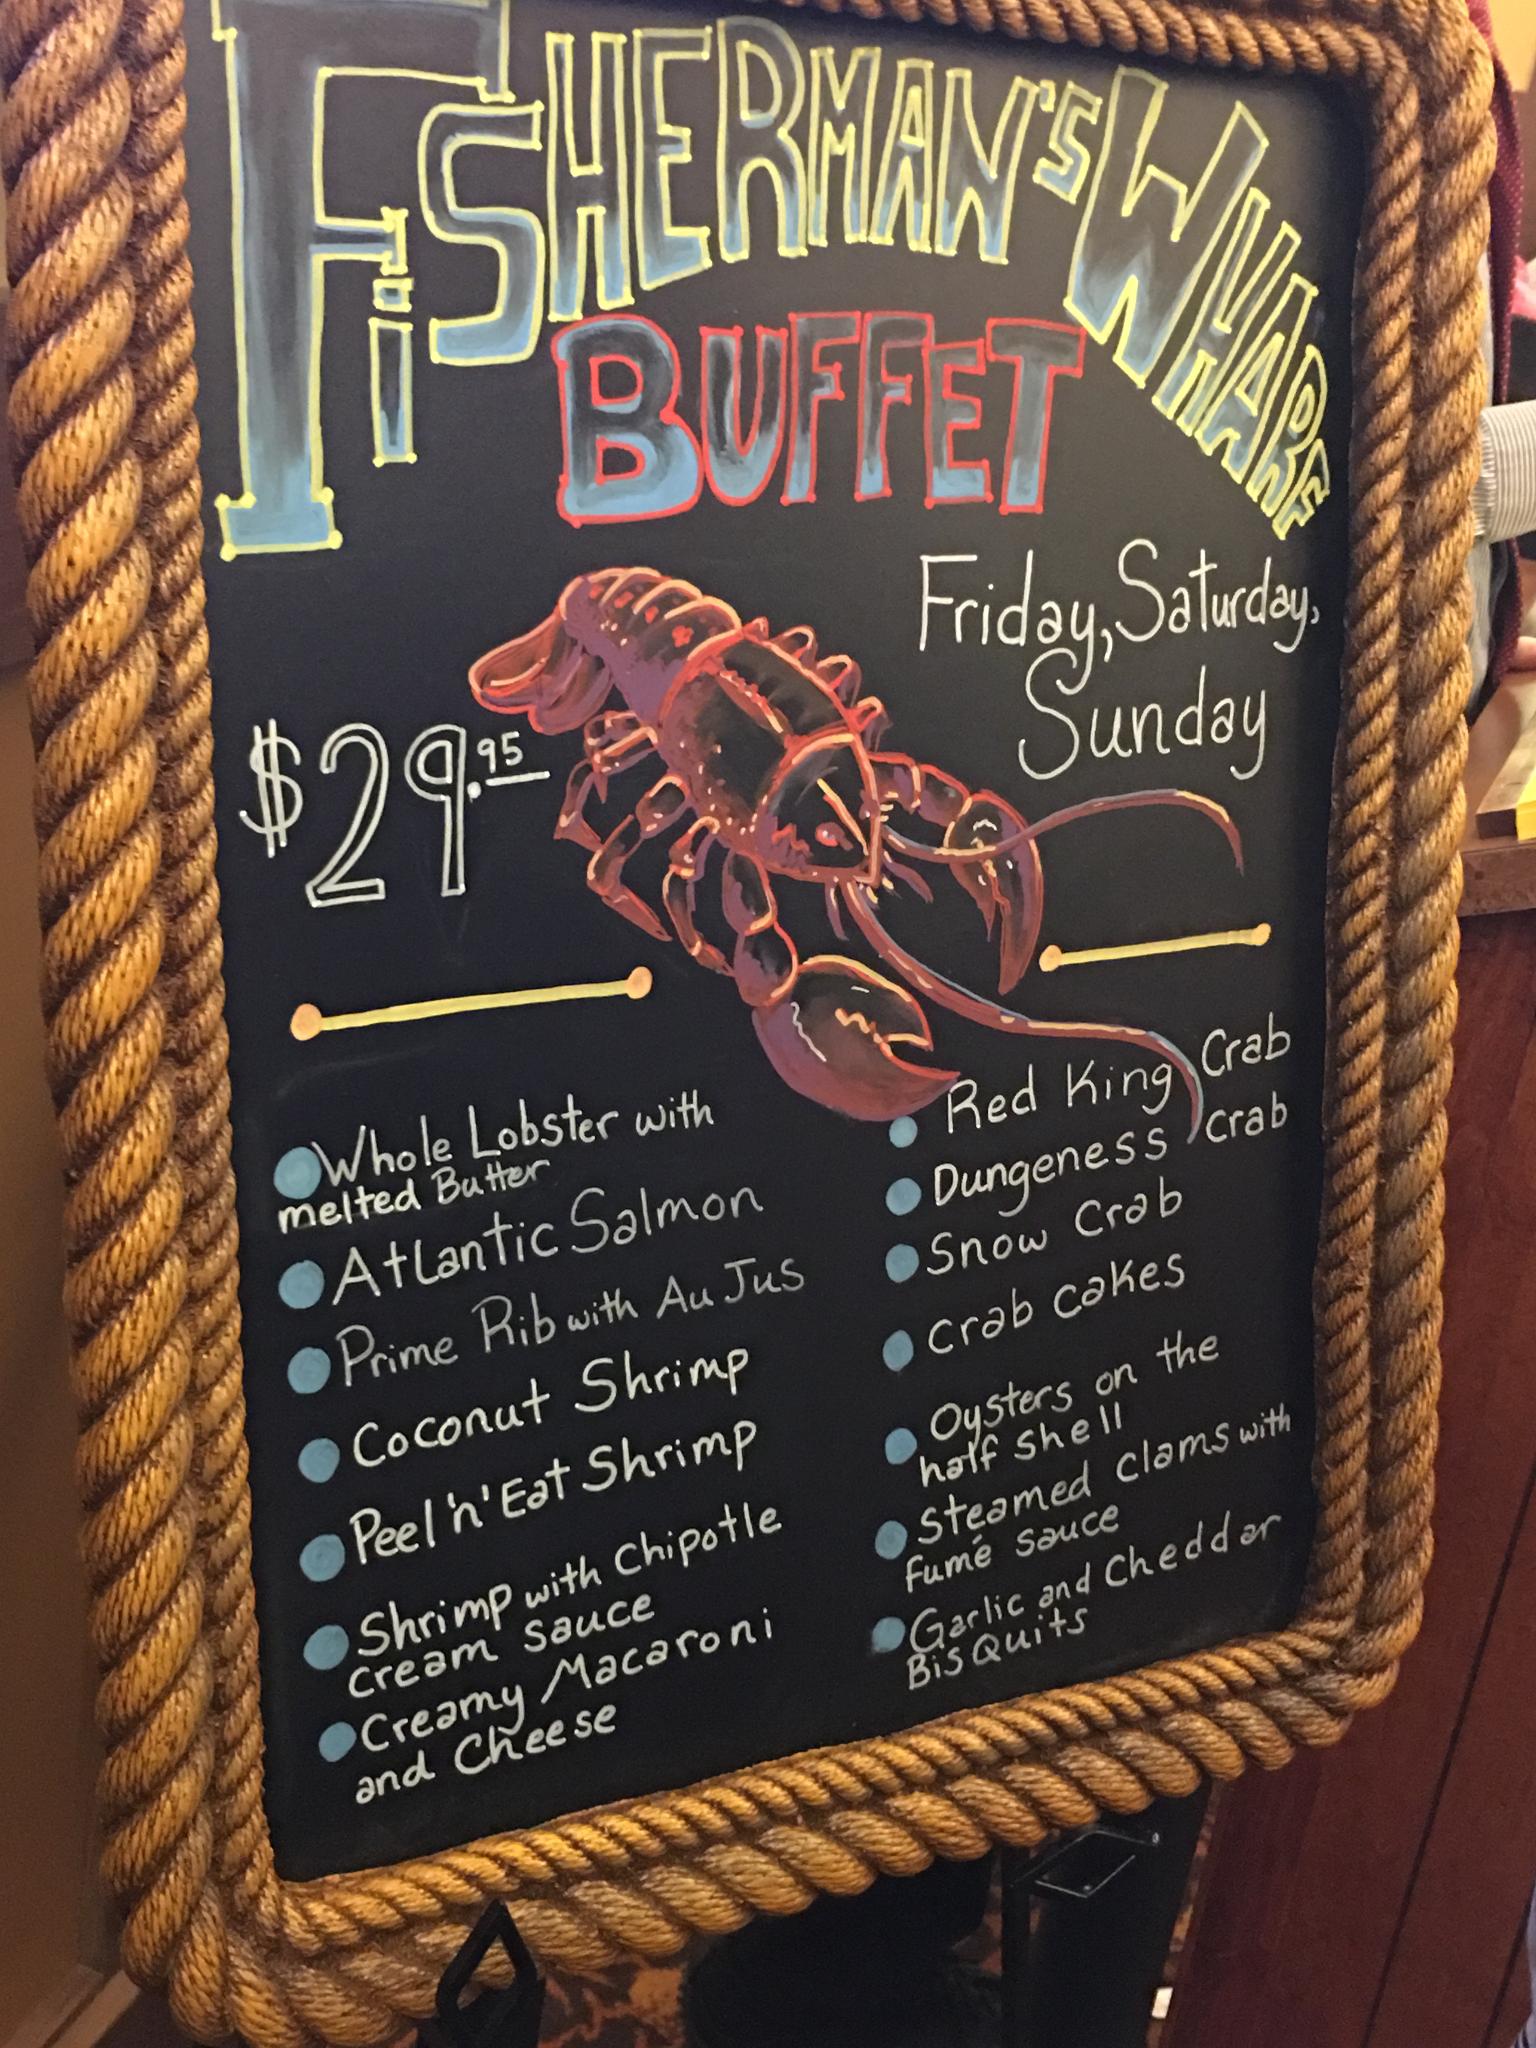 FiSHERMAN'S WHARF
BUFFET
Friday, Saturday,
Sunday
$29.95
Whole Lobster with
melted Butter
Atlantic Salmon
Prime Rib with Au Jus
Coconut Shrimp
Peel 'n' Eat Shrimp
Shrimp with Chipotle
cream sauce
Creamy Macaroni
and Cheese
Red King Crab
Dungeness Crab
Snow Crab
Crab cakes
Oysters on the
half shell
Steamed clams with
fumé sauce
Garlic and Cheddar
BisQuits